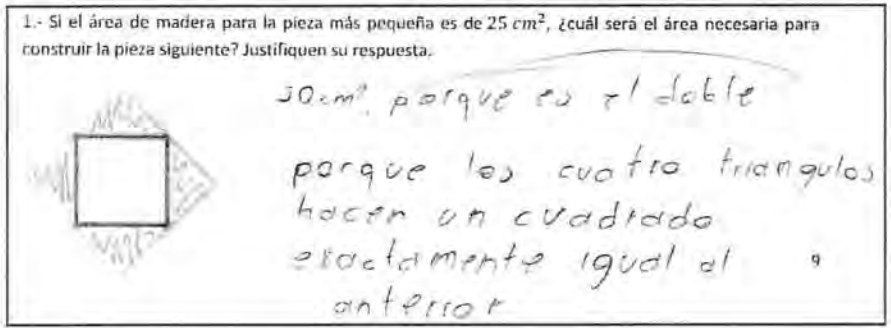 1.- Si el área de madera para la pieza más pequeña es de 25 cm², ¿cuál será el área necesaria para
construir la pieza siguiente? Justifiquen su respuesta.
50 cm² porque es el doble
porque los cuatro triangulos
hacen un cuadrado
exactamente igual al
anterior
9